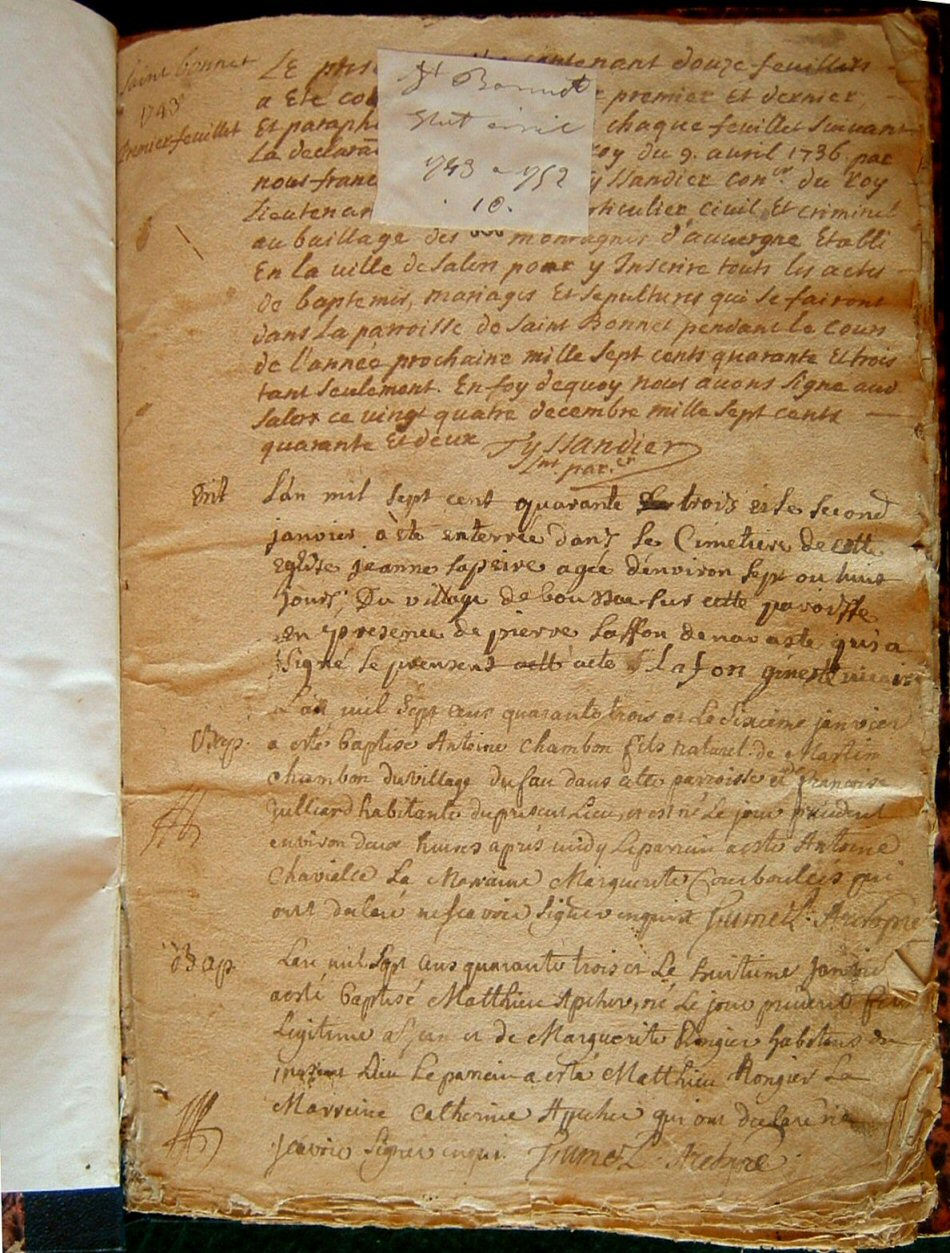 Saint bonnet
1743
premier feuillet
St Bonnet
Etat civil
1743 a 1752
10.
LE contenant douze feuillets
a Ete premier Et dernier
Et paraphé chaque feuillet suivant
La declara Roy du 9. avril 1736. par
nous fran Tyssandier con.er du roy
Lieutenan particulier civil Et criminel
au bailliage des montagnes d'auvergne Etabli
En la ville de Salers pour y Inscrire touts les actes
de baptemes, mariages Et sepultures qui se fairont
dans La parroisse de Saint Bonnet pendant le cours
de l'année prochaine mille sept cents quarante Et trois
tant seulement. En foy dequoy nous avons signé aud
Salers ce vingt quatre decembre mille sept cents
quarante Et deux Tyssandier
Lnt par.er
Ent
Lan mil sept cent quarante trois et le second
janvier a ete enterrée dans le Cimetiere de cette
Eglise jeanne lapeire agée d'environ sept ou huit
jours, Du village de sur cette paroisse
En presence de pierre laffon qui a
signé le present acte Lafon vicaire
Bap.
Lan mil sept cens quarante trois et Le sixieme janvier
a esté baptisé Antoine Chambon fils naturel de Martin
Chambon du village du fau dans cette parroisse et de françoise
Julliard habitante du present Lieu, et est né Le jour precedent
environ deux heures après midy Le parrein a esté Antoine
La Marraine Marguerite qui
ont declaré ne scavoir signer enquis
Bap
Lan mil sept cens quarante trois et Le huitieme janvier
a esté baptisé Matthieu Apcher, né Le jour precedent fils
Legitime a Jean et de Marguerite Rongier habitans du
present Lieu Le parrein a esté Matthieu Rongier La
Marreine Catherine Apcher qui ont declaré ne
scavoir signer enquis